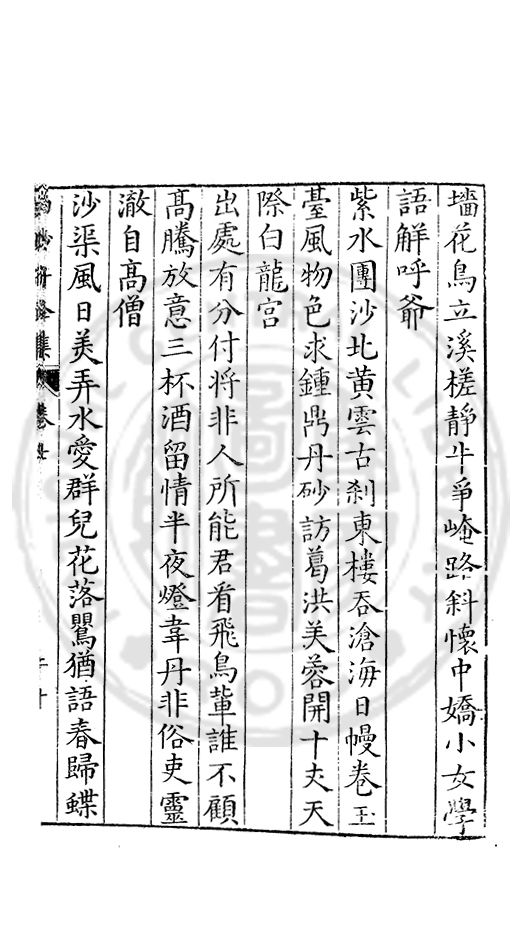 墻花鳥立溪槎靜牛爭崦路斜懷中嬌小女學
語解呼爺
紫水團沙北黃雲古剎東樓吞滄海日幔卷玉
臺風物色求鍾鼎丹砂訪葛洪芙蓉開十丈天
際白龍宮
出處有分付將非人所能君看飛鳥輩誰不顧
髙騰放意三杯酒留情半夜燈韋丹非俗吏靈
澈自髙僧
沙渠風日美弄水愛群兒花落鸎猶語春歸蝶